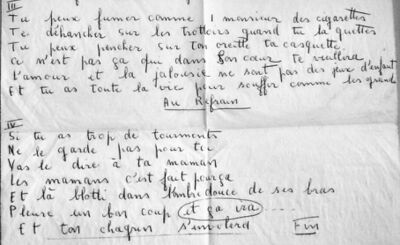 III
Tu peux fumer comme 1 monsieur des cigarettes
Te déhancher sur les trottoirs quand tu la guettes
Tu peux pencher sur ton oreille ta casquette
Ce n'est pas ça qui dans son cœur te vieillira
L'amour et la jalousie ne sont pas des jeux d'enfant
Et tu as toute la vie pour souffrir comme les grands
Au Refrain
IV
Si tu as trop de tourments
Ne le garde pas pour toi
Vas le dire à ta maman
Les mamans c'est fait pour ça
Et là blotti dans l'ombre douce de ses bras
Pleure un bon coup et ça ira ......
Et ton chagrin s'envolera Fin